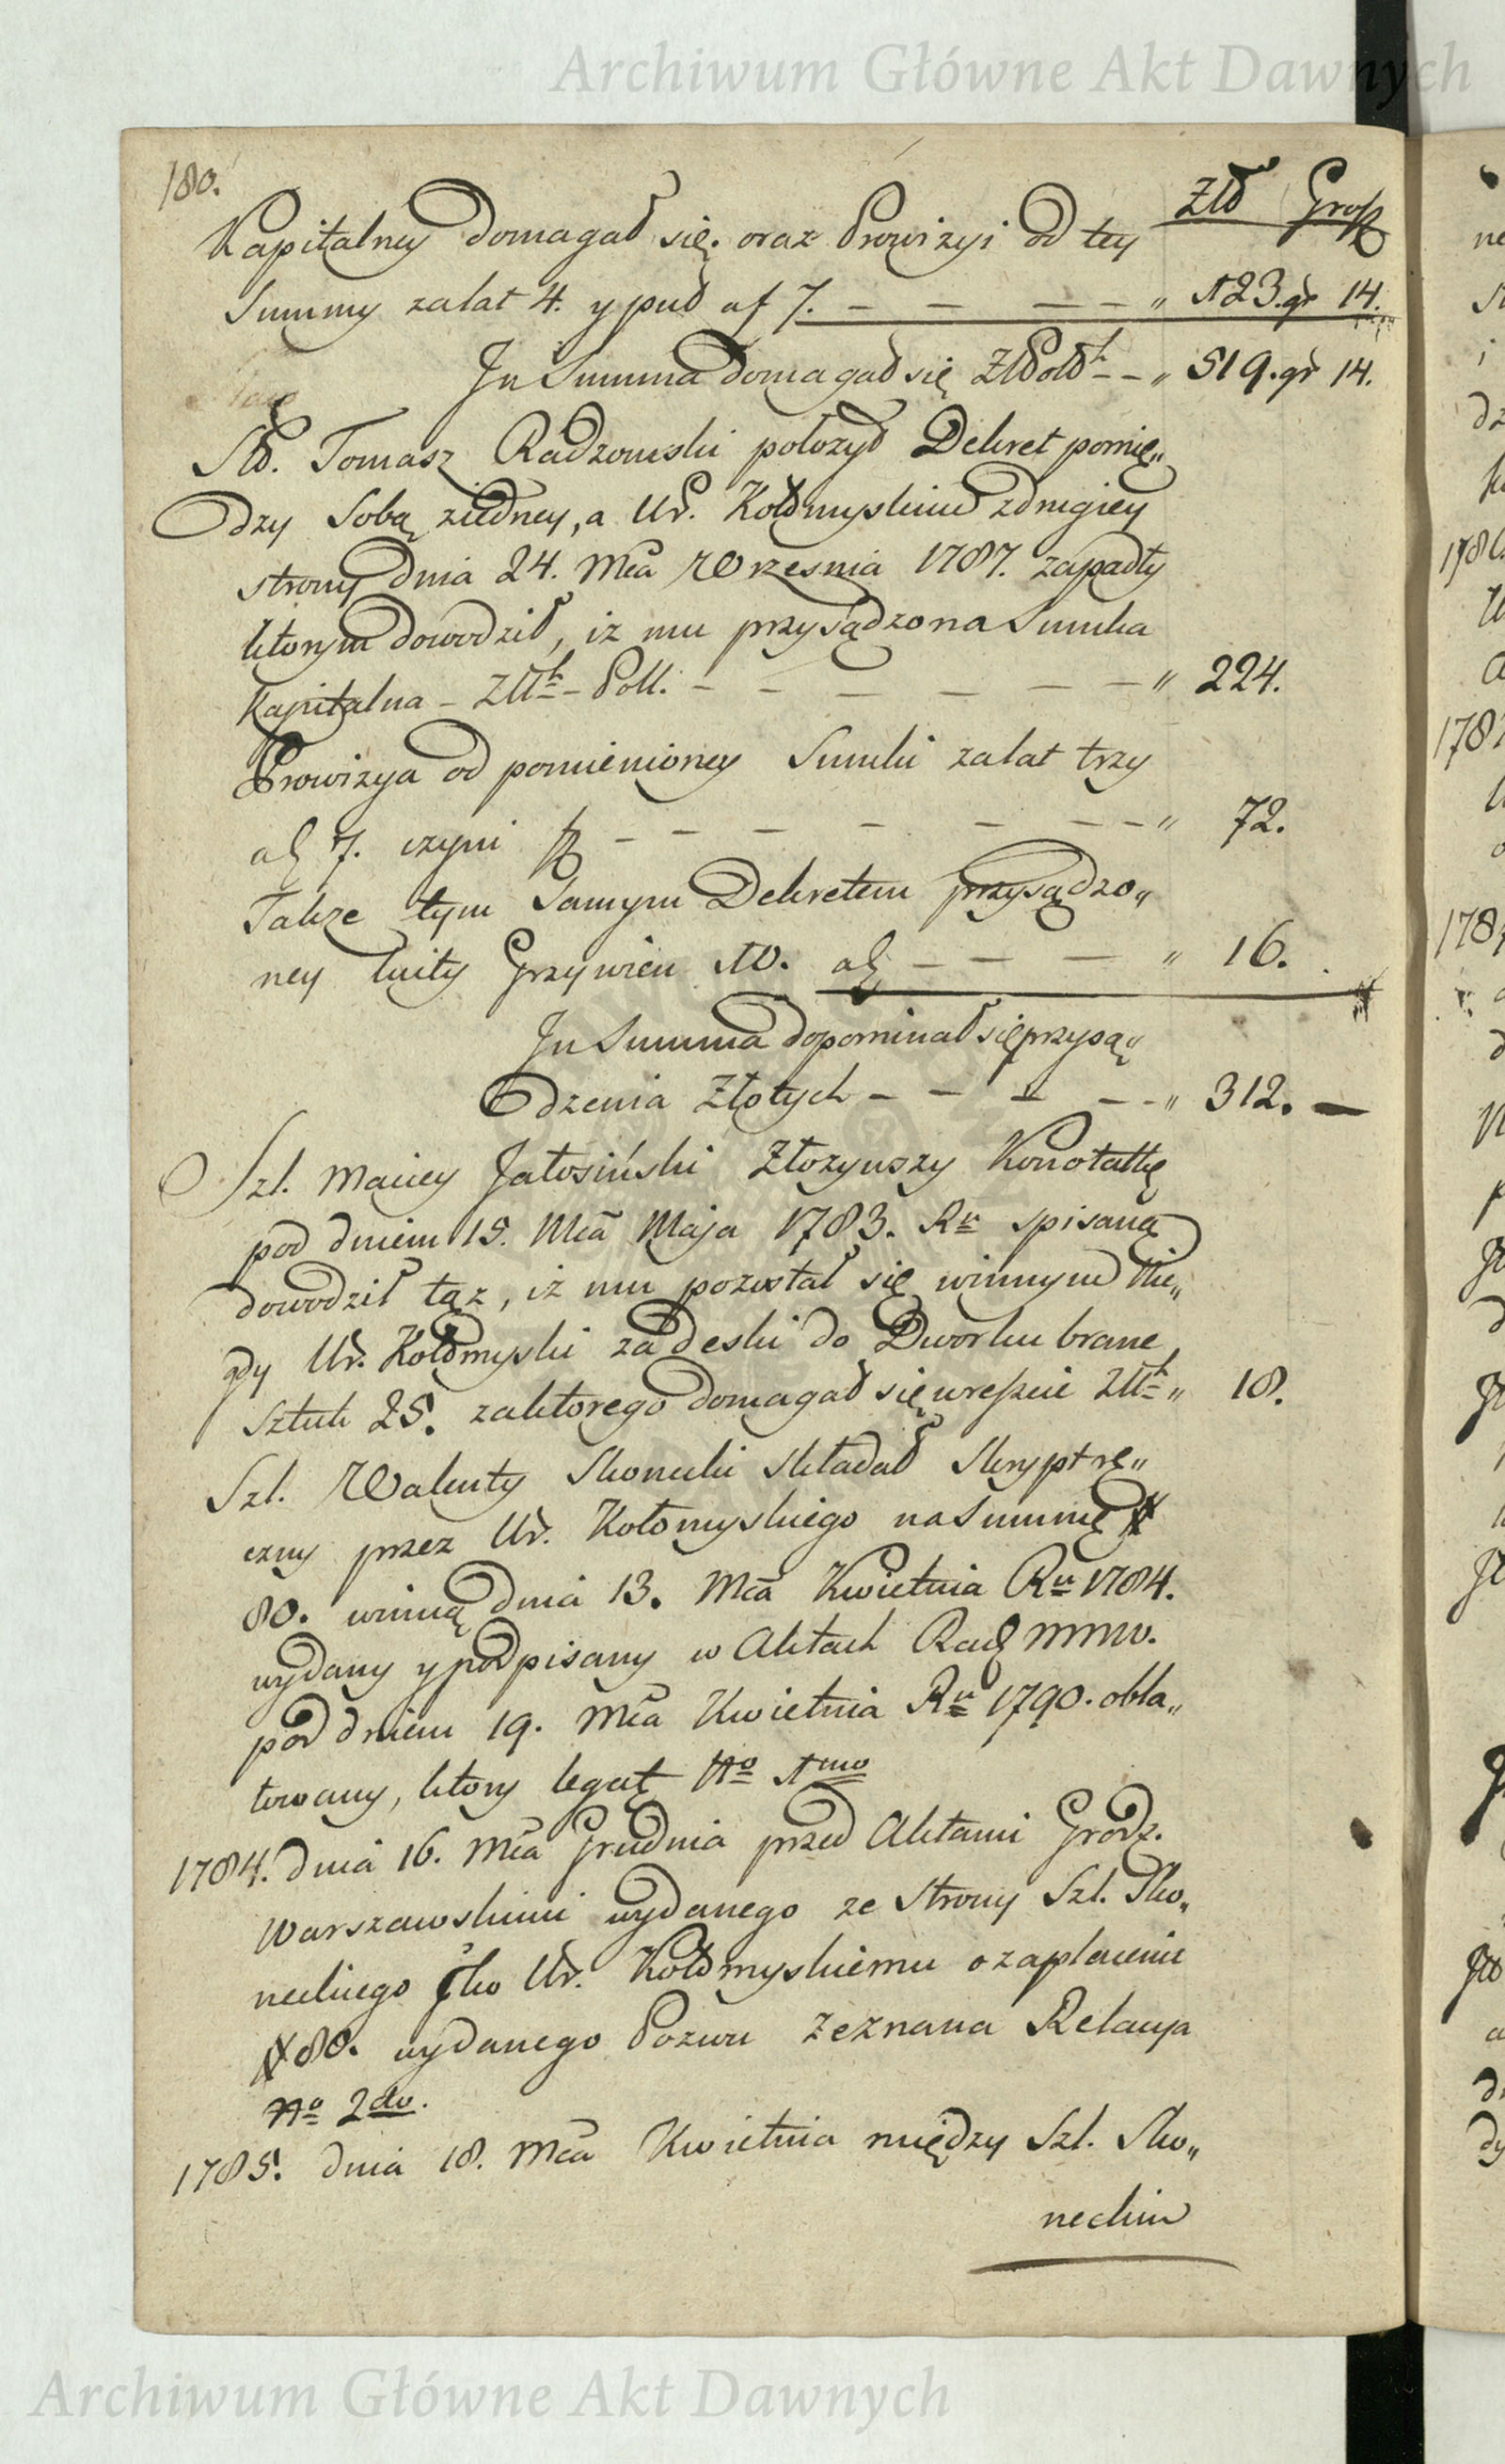 Archiwum Główne Akt Dawnych
180.
Złł Grosz
Kapitalney domagał się. oraz Prowizyi od tey
Summy zalat 4. y puł aſ 7. — — — — „ 123. gr 14.
Jn Summa domagał się Złł — — „ 519. gr 14.
Sł. Tomasz Radzomski położył Dekret pomię„
dzy Sobą ziedney, a Ur. Kołomyskim zdrugiey
strony dnia 24. Mca Września 1787. zapadły
ktorym dowodził, iż mu przysądzona Sumka
Kapitalna — Złłh Poll. — — — — — — „ 224.
Prowizya od pomienioney Sumki zalat trzy
a 7. czyni — — — — — — — „ 72.
Takze tym Samym Dekretem przysądzo„
ney kuity Grzywien 10. a — — — „ 16.
Jn Summa dopominał się przysą„
dzenia Złotych — — — — — „ 312. —
Szl. Maciey Jatosiński Złozywszy Konotatkę
pod dniem 15. Mca Maja 1783. Ru spisaną
dowodził tąż, iż mu pozostał się winnym Nie„
gdy Ur. Kołomyski za deski do Dworku brane
Sztuk 25. zaktorego domagał się wreszcie Złłh „ 18.
Szl. Walenty Skonecki składał Skrypt rę„
czny przez Ur. Kołomyskiego na Summę
80. winną dnia 13. Mca Kwietnia Ru 1784.
wydany y podpisany w Aktach Rad MMW.
pod dniem 19. Mca Kwietnia Ru 1790. obla„
towany, ktory legat No 1mo
1784. dnia 16. Mca Grudnia przed Aktami Grodz.
Warszawskimi wydanego ze Strony Szl. Sko„
neckiego ko Ur. Kołomyskiemu o zapłacenie
80. wydanego Pozwu zeznana Relacya
No 2do.
1785. dnia 18. Mca Kwietnia między Szl. Sko„
neckim
Archiwum Główne Akt Dawnych